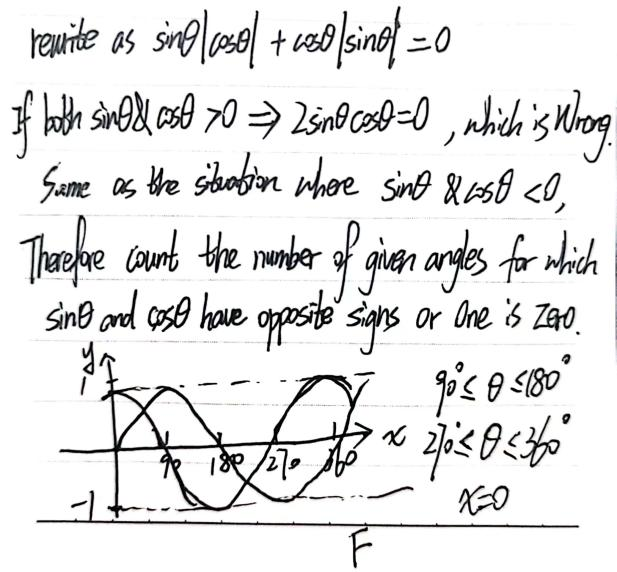 rewrite as sinθ|cosθ| + cosθ|sinθ| = 0
If both sinθ & cosθ > 0 ⇒ 2sinθcosθ=0, which is Wrong.
Same as the situation where sinθ & cosθ < 0,
Therefore count the number of given angles for which
sinθ and cosθ have opposite signs or one is zero.
y
1
90 180 270 360 x
-1
90°≤ θ ≤180°
270°≤ θ ≤360°
x=0
F